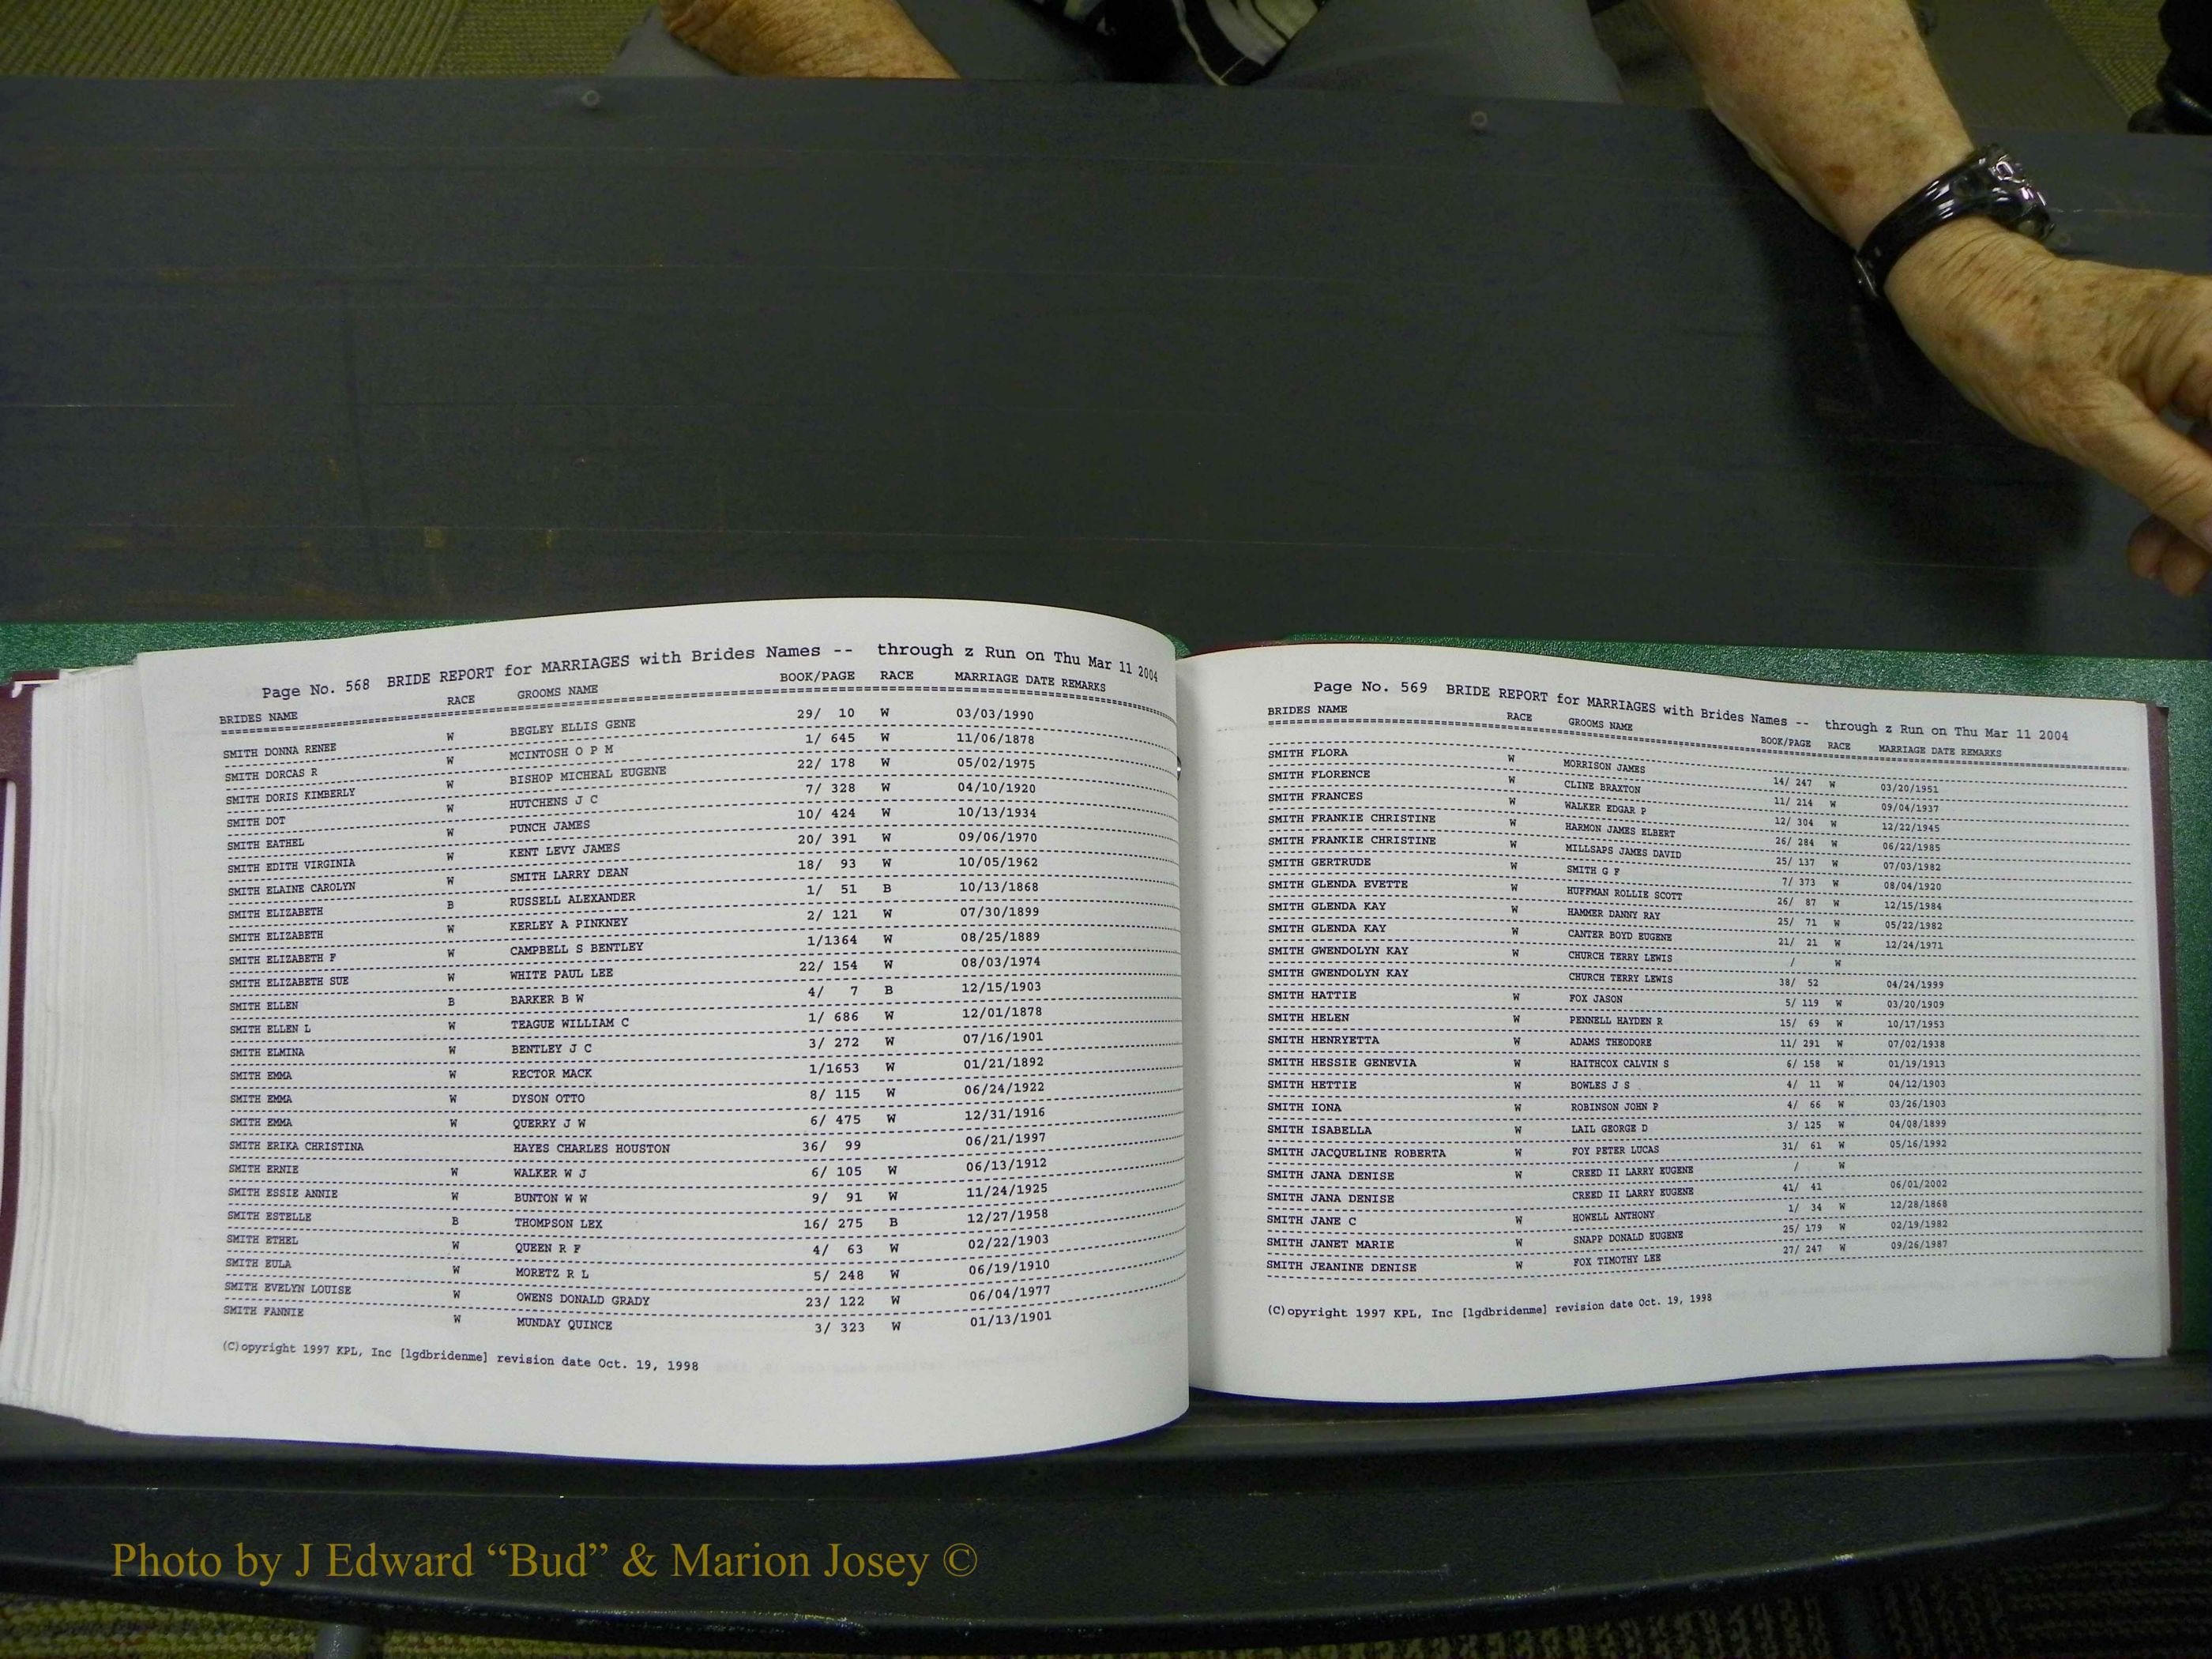 Page No. 568 BRIDE REPORT for MARRIAGES with Brides Names -- through z Run on Thu Mar 11 2004
BRIDES NAME RACE GROOMS NAME BOOK/PAGE RACE MARRIAGE DATE REMARKS
SMITH DONNA RENEE W BEGLEY ELLIS GENE 29/ 10 W 03/03/1990
SMITH DORCAS R W MCINTOSH O P M 1/ 645 W 11/06/1878
SMITH DORIS KIMBERLY W BISHOP MICHEAL EUGENE 22/ 178 W 05/02/1975
SMITH DOT W HUTCHENS J C 7/ 328 W 04/10/1920
SMITH EATHEL W PUNCH JAMES 10/ 424 W 10/13/1934
SMITH EDITH VIRGINIA W KENT LEVY JAMES 20/ 391 W 09/06/1970
SMITH ELAINE CAROLYN W SMITH LARRY DEAN 18/ 93 W 10/05/1962
SMITH ELIZABETH B RUSSELL ALEXANDER 1/ 51 B 10/13/1868
SMITH ELIZABETH W KERLEY A PINKNEY 2/ 121 W 07/30/1899
SMITH ELIZABETH F W CAMPBELL S BENTLEY 1/1364 W 08/25/1889
SMITH ELIZABETH SUE W WHITE PAUL LEE 22/ 154 W 08/03/1974
SMITH ELLEN B BARKER B W 4/ 7 B 12/15/1903
SMITH ELLEN L W TEAGUE WILLIAM C 1/ 686 W 12/01/1878
SMITH ELMINA W BENTLEY J C 3/ 272 W 07/16/1901
SMITH EMMA W RECTOR MACK 1/1653 W 01/21/1892
SMITH EMMA W DYSON OTTO 8/ 115 W 06/24/1922
SMITH EMMA W QUERRY J W 6/ 475 W 12/31/1916
SMITH ERIKA CHRISTINA HAYES CHARLES HOUSTON 36/ 99 06/21/1997
SMITH ERNIE W WALKER W J 6/ 105 W 06/13/1912
SMITH ESSIE ANNIE W BUNTON W W 9/ 91 W 11/24/1925
SMITH ESTELLE B THOMPSON LEX 16/ 275 B 12/27/1958
SMITH ETHEL W QUEEN R F 4/ 63 W 02/22/1903
SMITH EULA W MORETZ R L 5/ 248 W 06/19/1910
SMITH EVELYN LOUISE W OWENS DONALD GRADY 23/ 122 W 06/04/1977
SMITH FANNIE W MUNDAY QUINCE 3/ 323 W 01/13/1901
(C)opyright 1997 KPL, Inc [lgdbridenme] revision date Oct. 19, 1998
Page No. 569 BRIDE REPORT for MARRIAGES with Brides Names -- through z Run on Thu Mar 11 2004
BRIDES NAME RACE GROOMS NAME BOOK/PAGE RACE MARRIAGE DATE REMARKS
SMITH FLORA W MORRISON JAMES 14/ 247 W 03/20/1951
SMITH FLORENCE W CLINE BRAXTON 11/ 214 W 09/04/1937
SMITH FRANCES W WALKER EDGAR P 12/ 304 W 12/22/1945
SMITH FRANKIE CHRISTINE W HARMON JAMES ELBERT 26/ 284 W 06/22/1985
SMITH FRANKIE CHRISTINE W MILLSAPS JAMES DAVID 25/ 137 W 07/03/1982
SMITH GERTRUDE W SMITH G F 7/ 373 W 08/04/1920
SMITH GLENDA EVETTE W HUFFMAN ROLLIE SCOTT 26/ 87 W 12/15/1984
SMITH GLENDA KAY W HAMMER DANNY RAY 25/ 71 W 05/22/1982
SMITH GLENDA KAY W CANTER BOYD EUGENE 21/ 21 W 12/24/1971
SMITH GWENDOLYN KAY W CHURCH TERRY LEWIS / W
SMITH GWENDOLYN KAY CHURCH TERRY LEWIS 38/ 52 04/24/1999
SMITH HATTIE W FOX JASON 5/ 119 W 03/20/1909
SMITH HELEN W PENNELL HAYDEN R 15/ 69 W 10/17/1953
SMITH HENRYETTA W ADAMS THEODORE 11/ 291 W 07/02/1938
SMITH HESSIE GENEVIA W HAITHCOX CALVIN S 6/ 158 W 01/19/1913
SMITH HETTIE W BOWLES J S 4/ 11 W 04/12/1903
SMITH IONA W ROBINSON JOHN P 4/ 66 W 03/26/1903
SMITH ISABELLA W LAIL GEORGE D 3/ 125 W 04/08/1899
SMITH JACQUELINE ROBERTA W FOY PETER LUCAS 31/ 61 W 05/16/1992
SMITH JANA DENISE W CREED II LARRY EUGENE / W
SMITH JANA DENISE CREED II LARRY EUGENE 41/ 41 06/01/2002
SMITH JANE C W HOWELL ANTHONY 1/ 34 W 12/28/1868
SMITH JANET MARIE W SNAPP DONALD EUGENE 25/ 179 W 02/19/1982
SMITH JEANINE DENISE W FOX TIMOTHY LEE 27/ 247 W 09/26/1987
(C)opyright 1997 KPL, Inc [lgdbridenme] revision date Oct. 19, 1998
Photo by J Edward “Bud” & Marion Josey ©